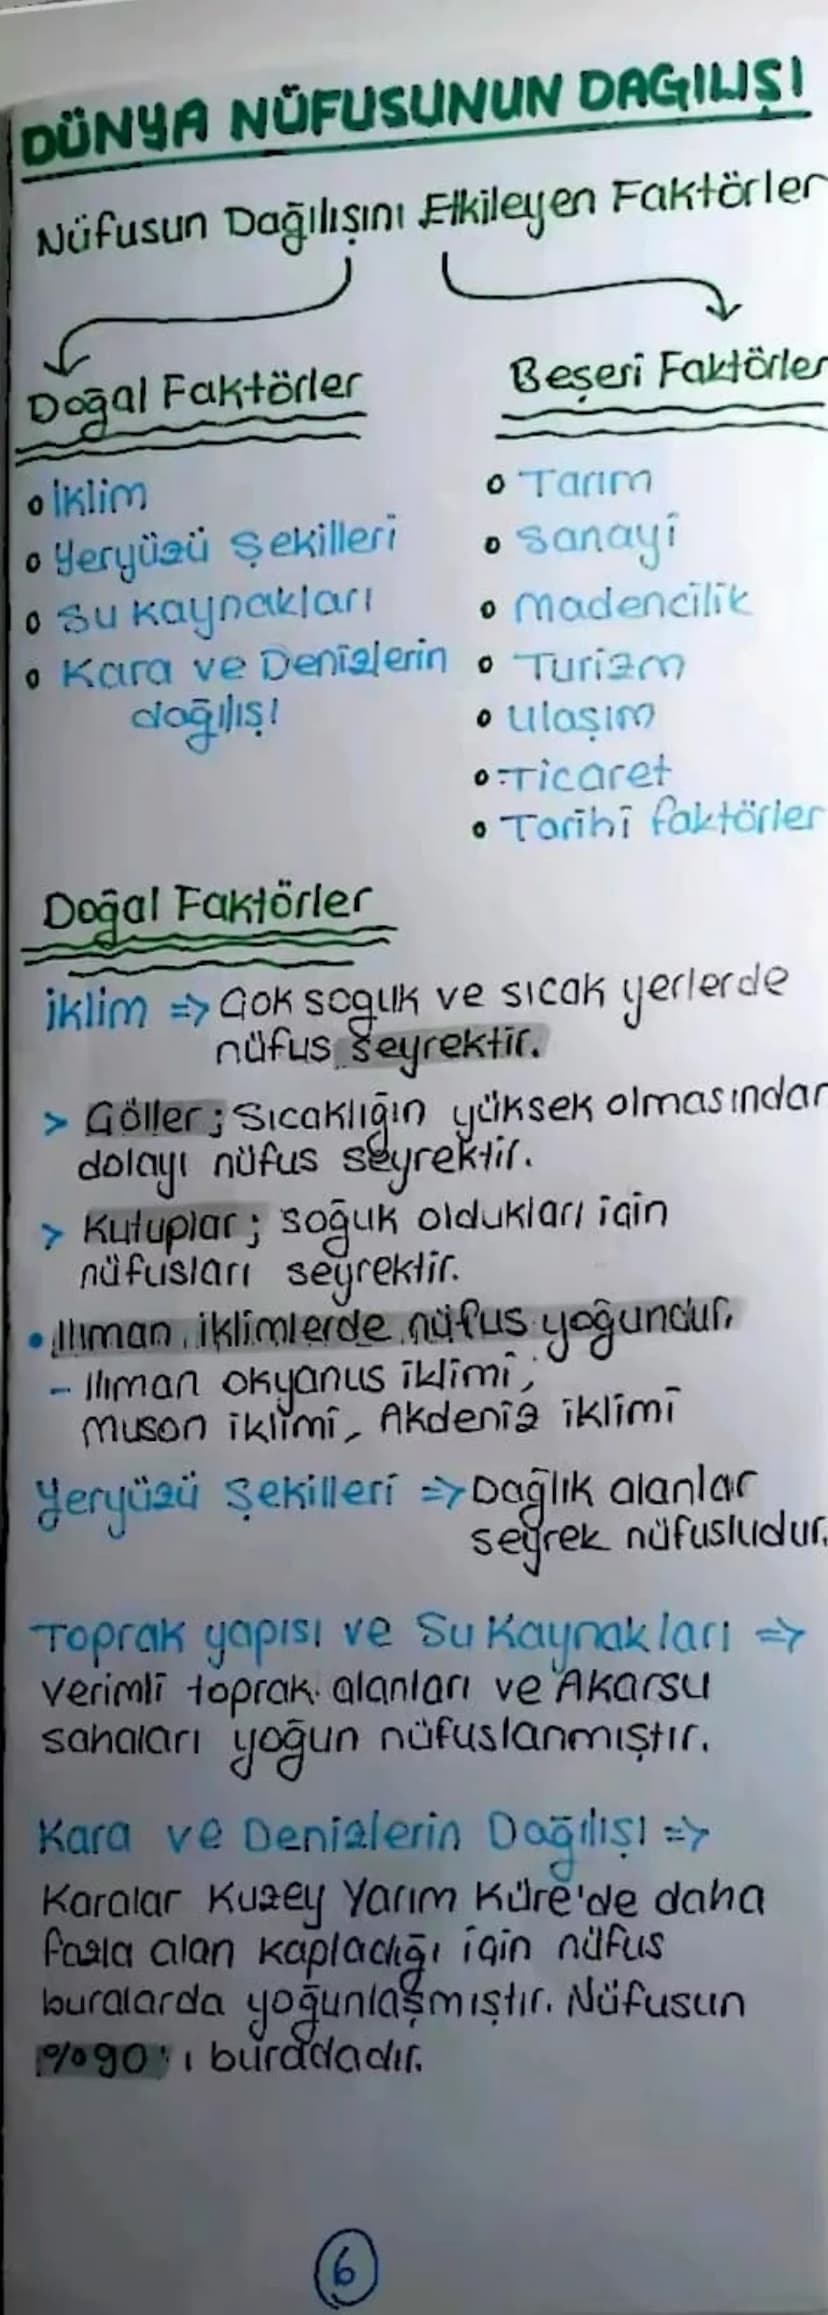 DÜNYA NÜFUSUNUN DAGILIŞI
Nüfusun Dağılışını Etkileyen Faktörler
Doğal Faktörler
Beşeri Faktörler
İklim
Yeryüzü Şekilleri
Su Kaynakları
Kara ve Denizlerin
dağılışı
Tarım
Sanayi
Madencilik
Turizm
Ulaşım
Ticaret
Tarihi faktörler
Doğal Faktörler
İklim => Çok soguk ve sıcak yerlerde
nüfus seyrektir.
> Göller; Sıcaklığın yüksek olmasından
dolayı nüfus seyrektir.
> Kutuplar; soğuk oldukları için
nüfusları seyrektir.
• Ilıman iklimlerde nüfus yoğundur.
- Ilıman okyanus iklimi,
Muson iklimi, Akdeniz iklimi
Yeryüzü Şekilleri => Dağlık alanlar
seyrek nüfusludur.
Toprak yapısı ve Su Kaynakları =>
Verimli toprak alanları ve Akarsu
sahaları yoğun nüfuslanmıştır.
Kara ve Denizlerin Dağılışı =>
Karalar Kuzey Yarım Küre'de daha
fazla alan kapladığı için nüfus
buralarda yoğunlaşmıştır. Nüfusun
%90'ı buradadır.
6